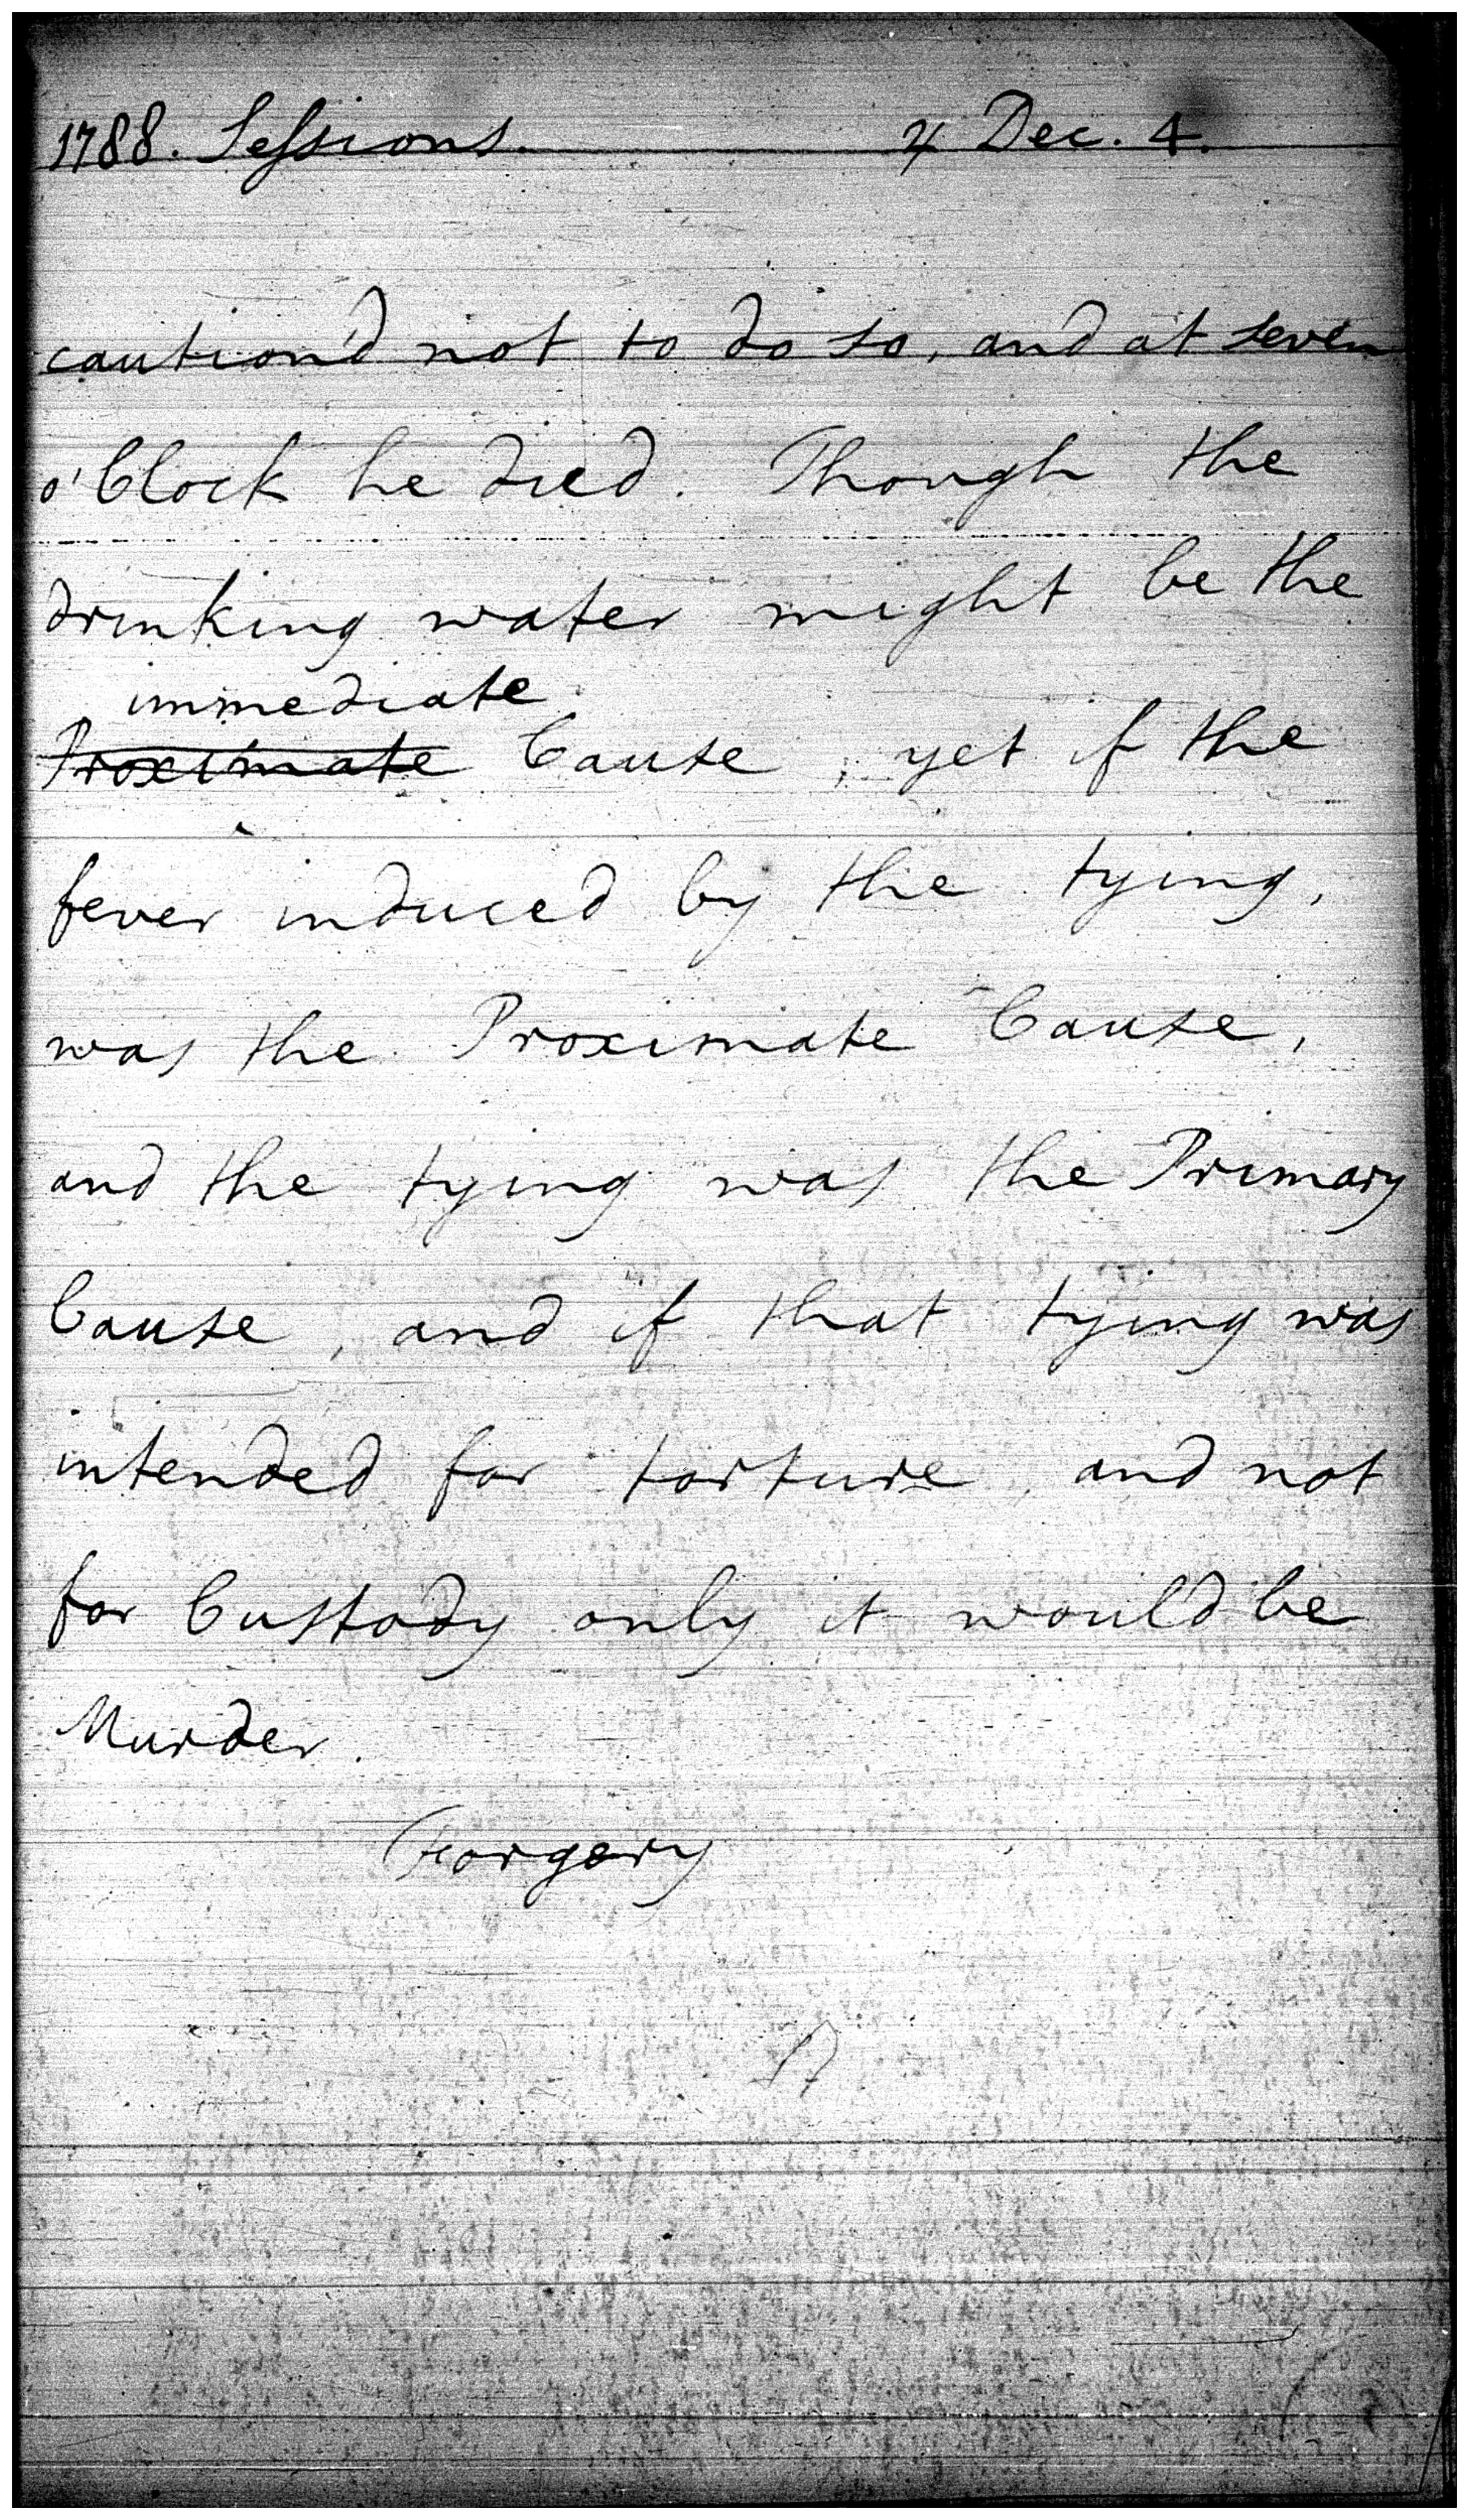 1788. Sessions. ♃ Dec. 4.
caution'd not to do so, and at seven
o'Clock he died. Though the
drinking water might be the
immediate
Proximate Cause, yet if the
fever induced by the tying,
was the Proximate Cause,
and the tying was the Primary
Cause, and if that tying was
intended for torture, and not
for Custody only it would be
Murder.
Forgery